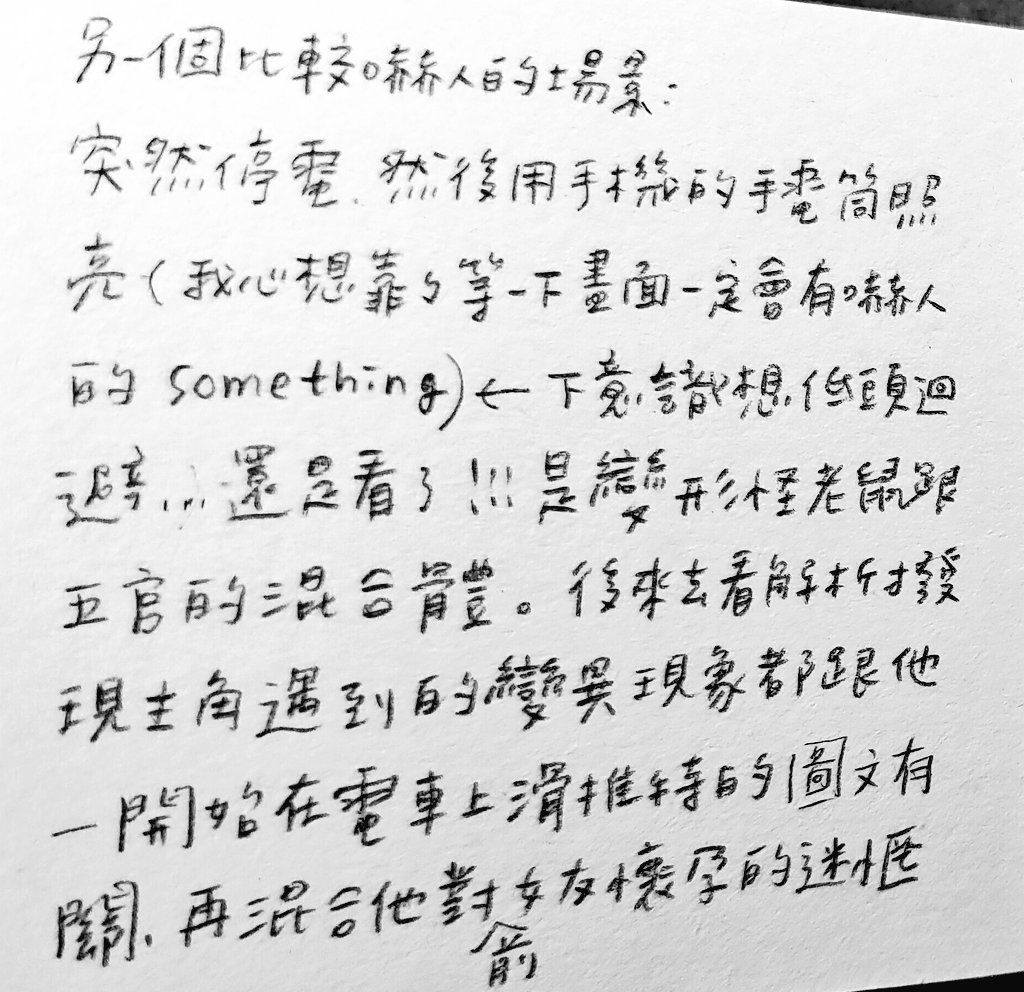 另一個比較嚇人的場景：
突然停電、然後用手機的手電筒照
亮（我心想靠ㄅ等一下畫面一定會有嚇人
的 something）← 下意識想低頭迴
避...還是看了!!! 是變形怪老鼠跟
五官的混合體。後來去看解析發
現主角遇到的變異現象都跟他
一開始在電車上滑推特的圖文有
關、再混合他對前女友懷孕的迷惘